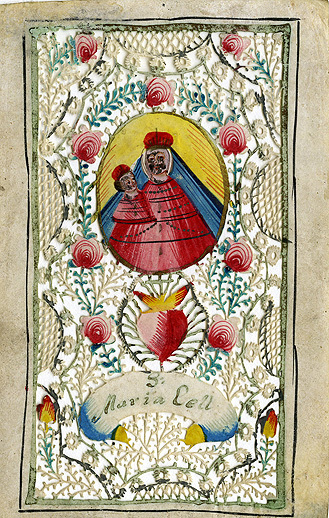 S.
Maria Cell